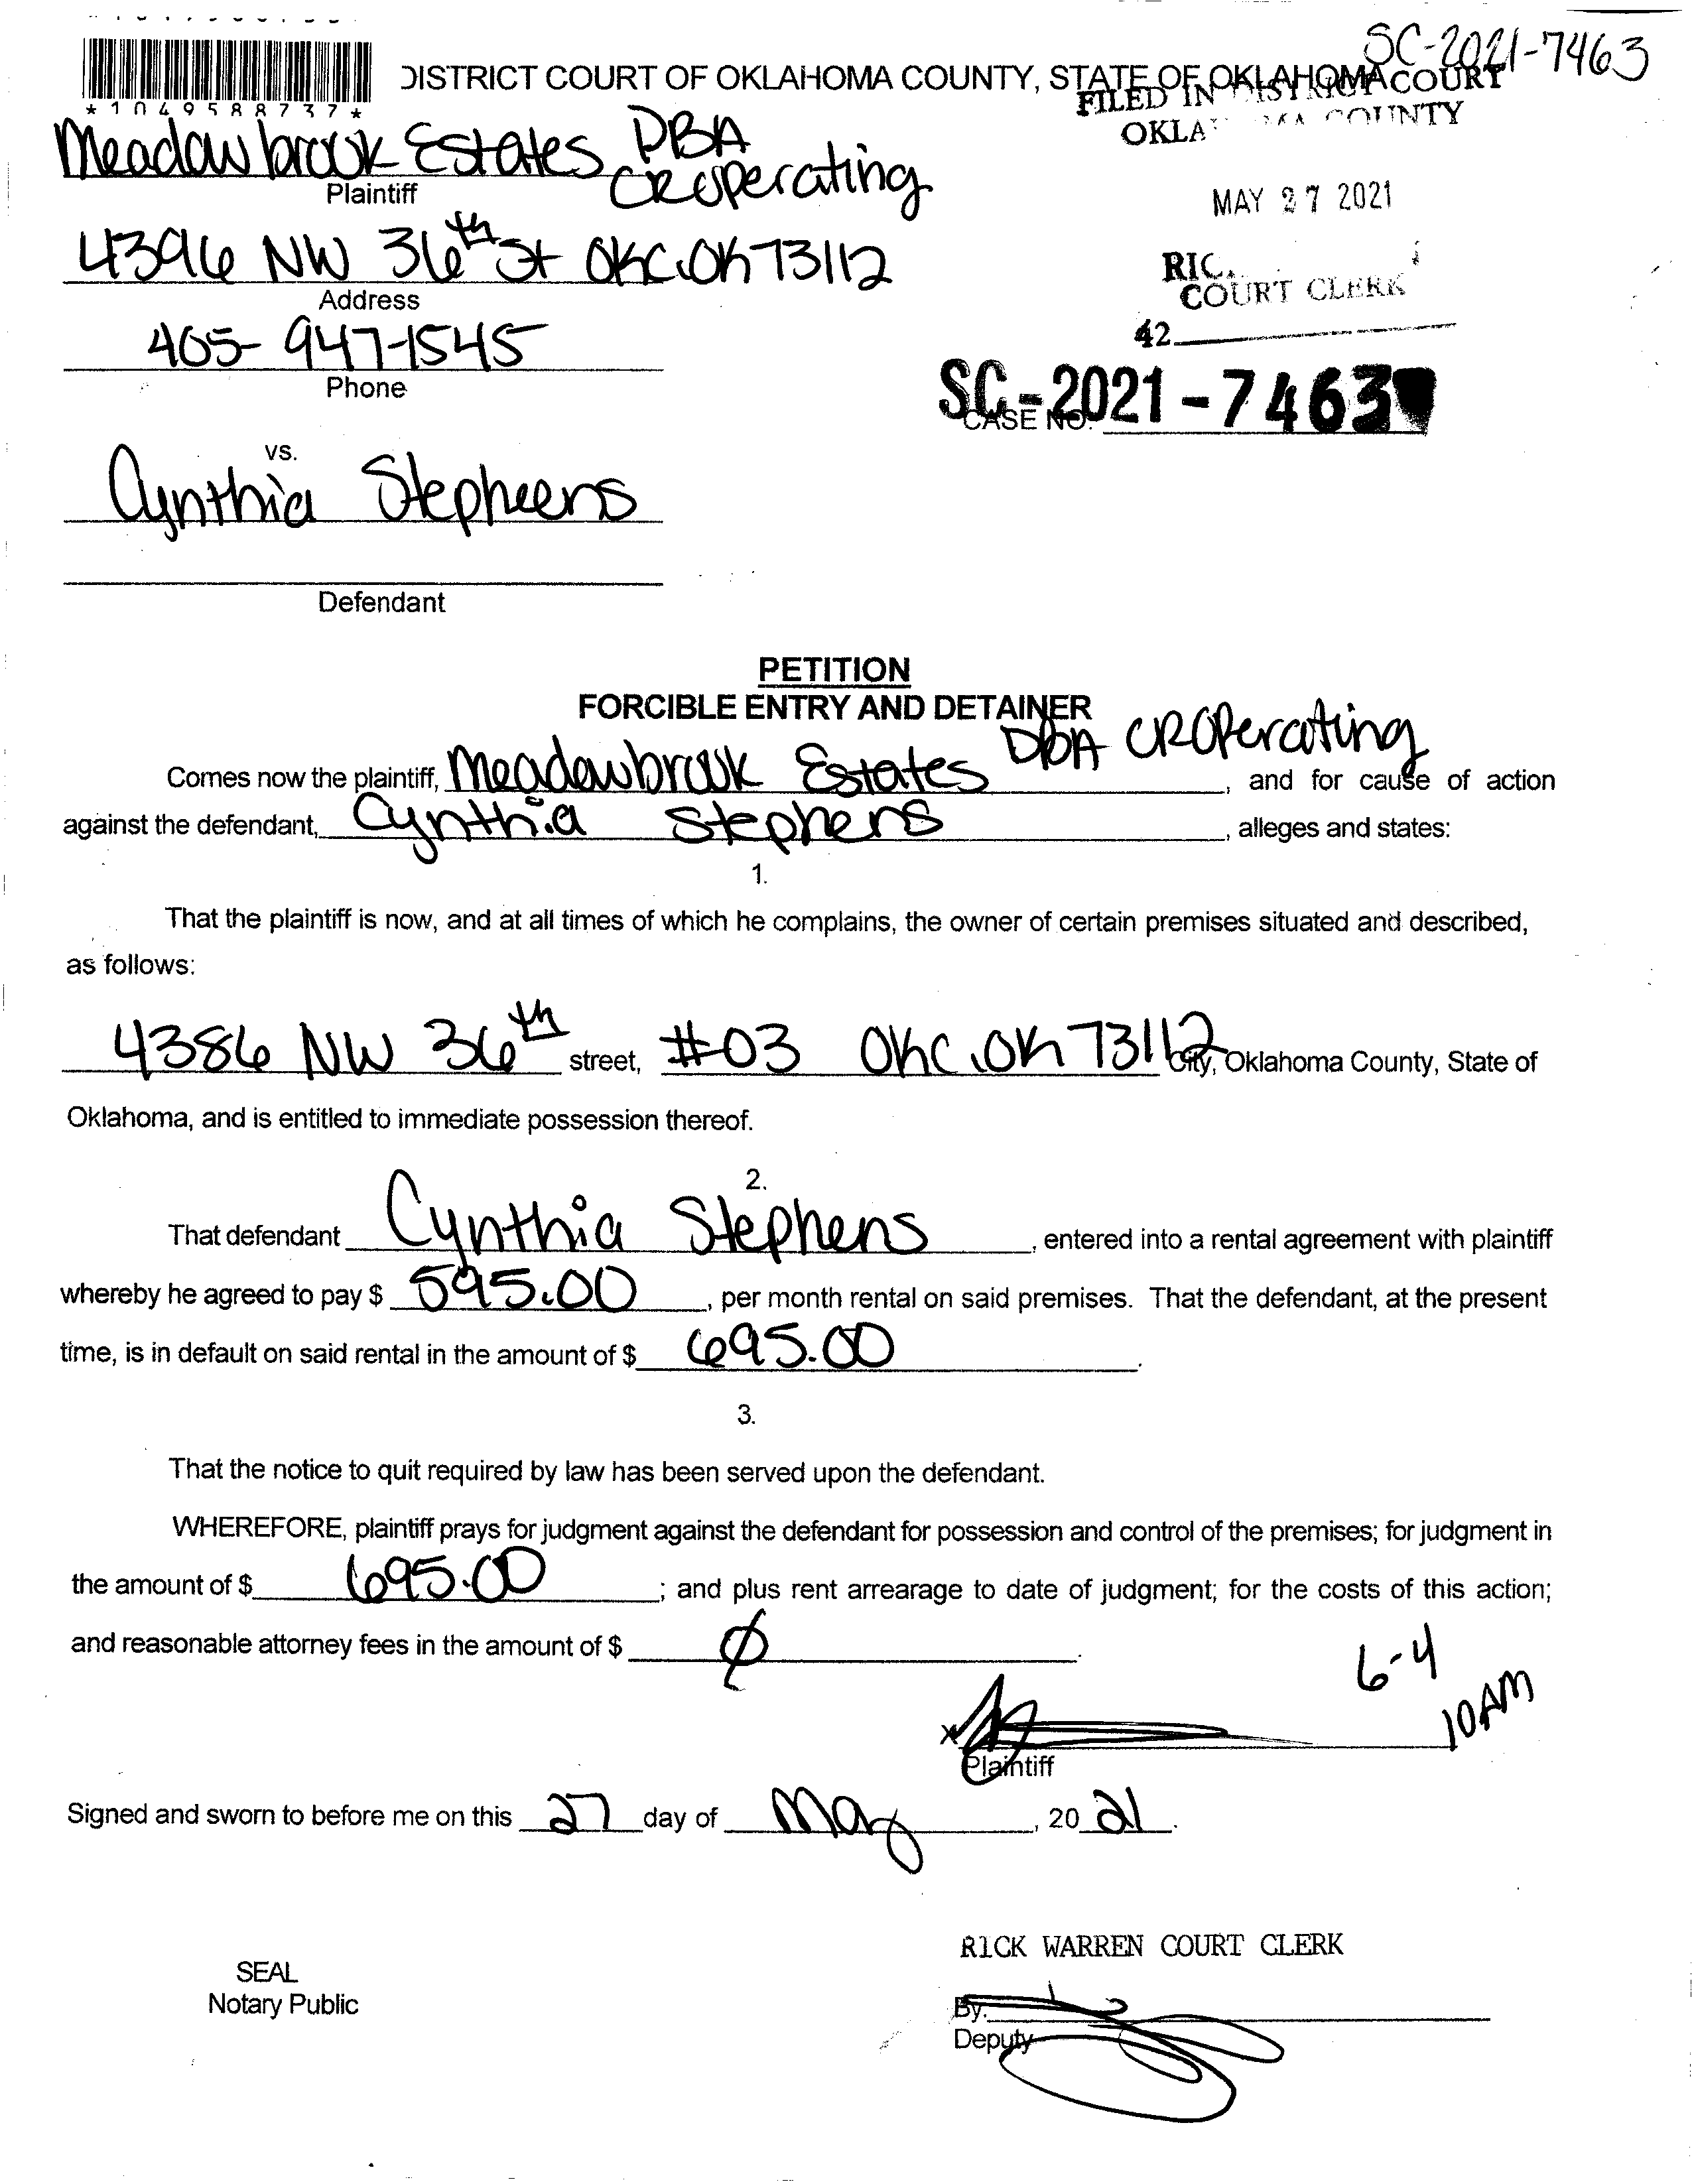 SC-2021-7463
DISTRICT COURT OF OKLAHOMA COUNTY, STATE OF OKLAHOMA
*1049588737*
FILED IN DISTRICT COURT
COUNTY
Meadowbrook Estates DBA
CROperating
Plaintiff
MAY 27 2021
4396 NW 36th St OKC, OK 73112
Address
COURT CLERK
405-947-1545
42
Phone
SC-2021-7463
CASE NO.
vs.
Cynthia Stepheens
Defendant
PETITION
FORCIBLE ENTRY AND DETAINER
Comes now the plaintiff, Meadowbrook Estates DBA CROperating, and for cause of action
against the defendant, Cynthia Stephens, alleges and states:
1.
That the plaintiff is now, and at all times of which he complains, the owner of certain premises situated and described,
as follows:
4386 NW 36th street, #03 OKC, OK 73112 City, Oklahoma County, State of
Oklahoma, and is entitled to immediate possession thereof.
2.
That defendant Cynthia Stephens, entered into a rental agreement with plaintiff
whereby he agreed to pay $ 595.00, per month rental on said premises. That the defendant, at the present
time, is in default on said rental in the amount of $ 695.00.
3.
That the notice to quit required by law has been served upon the defendant.
WHEREFORE, plaintiff prays for judgment against the defendant for possession and control of the premises; for judgment in
the amount of $ 695.00; and plus rent arrearage to date of judgment; for the costs of this action;
and reasonable attorney fees in the amount of $ Ø.
6-4
10AM
x
Plaintiff
Signed and sworn to before me on this 27 day of May, 20 21.
RICK WARREN COURT CLERK
SEAL
Notary Public
By:
Deputy